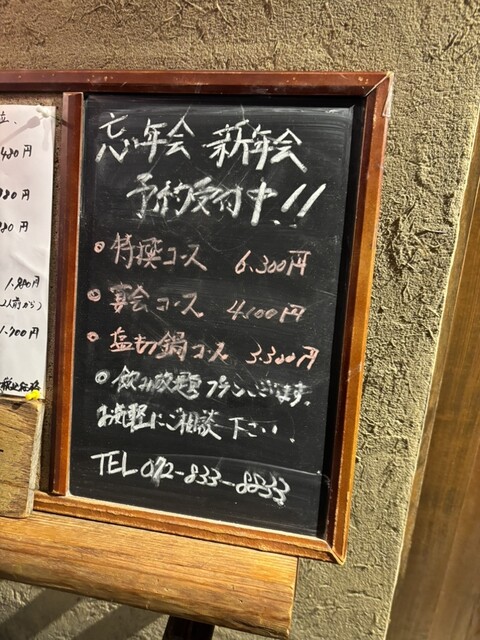 480円
980円
980円
1.980円
(2人前から)
1.700円
税込価格
忘年会 新年会
予約受付中!!
特撰コース 6.300円
宴会コース 4.100円
塩もつ鍋コース 3.300円
飲み放題プランございます。
お気軽にご相談下さい。
TEL 072-833-8833